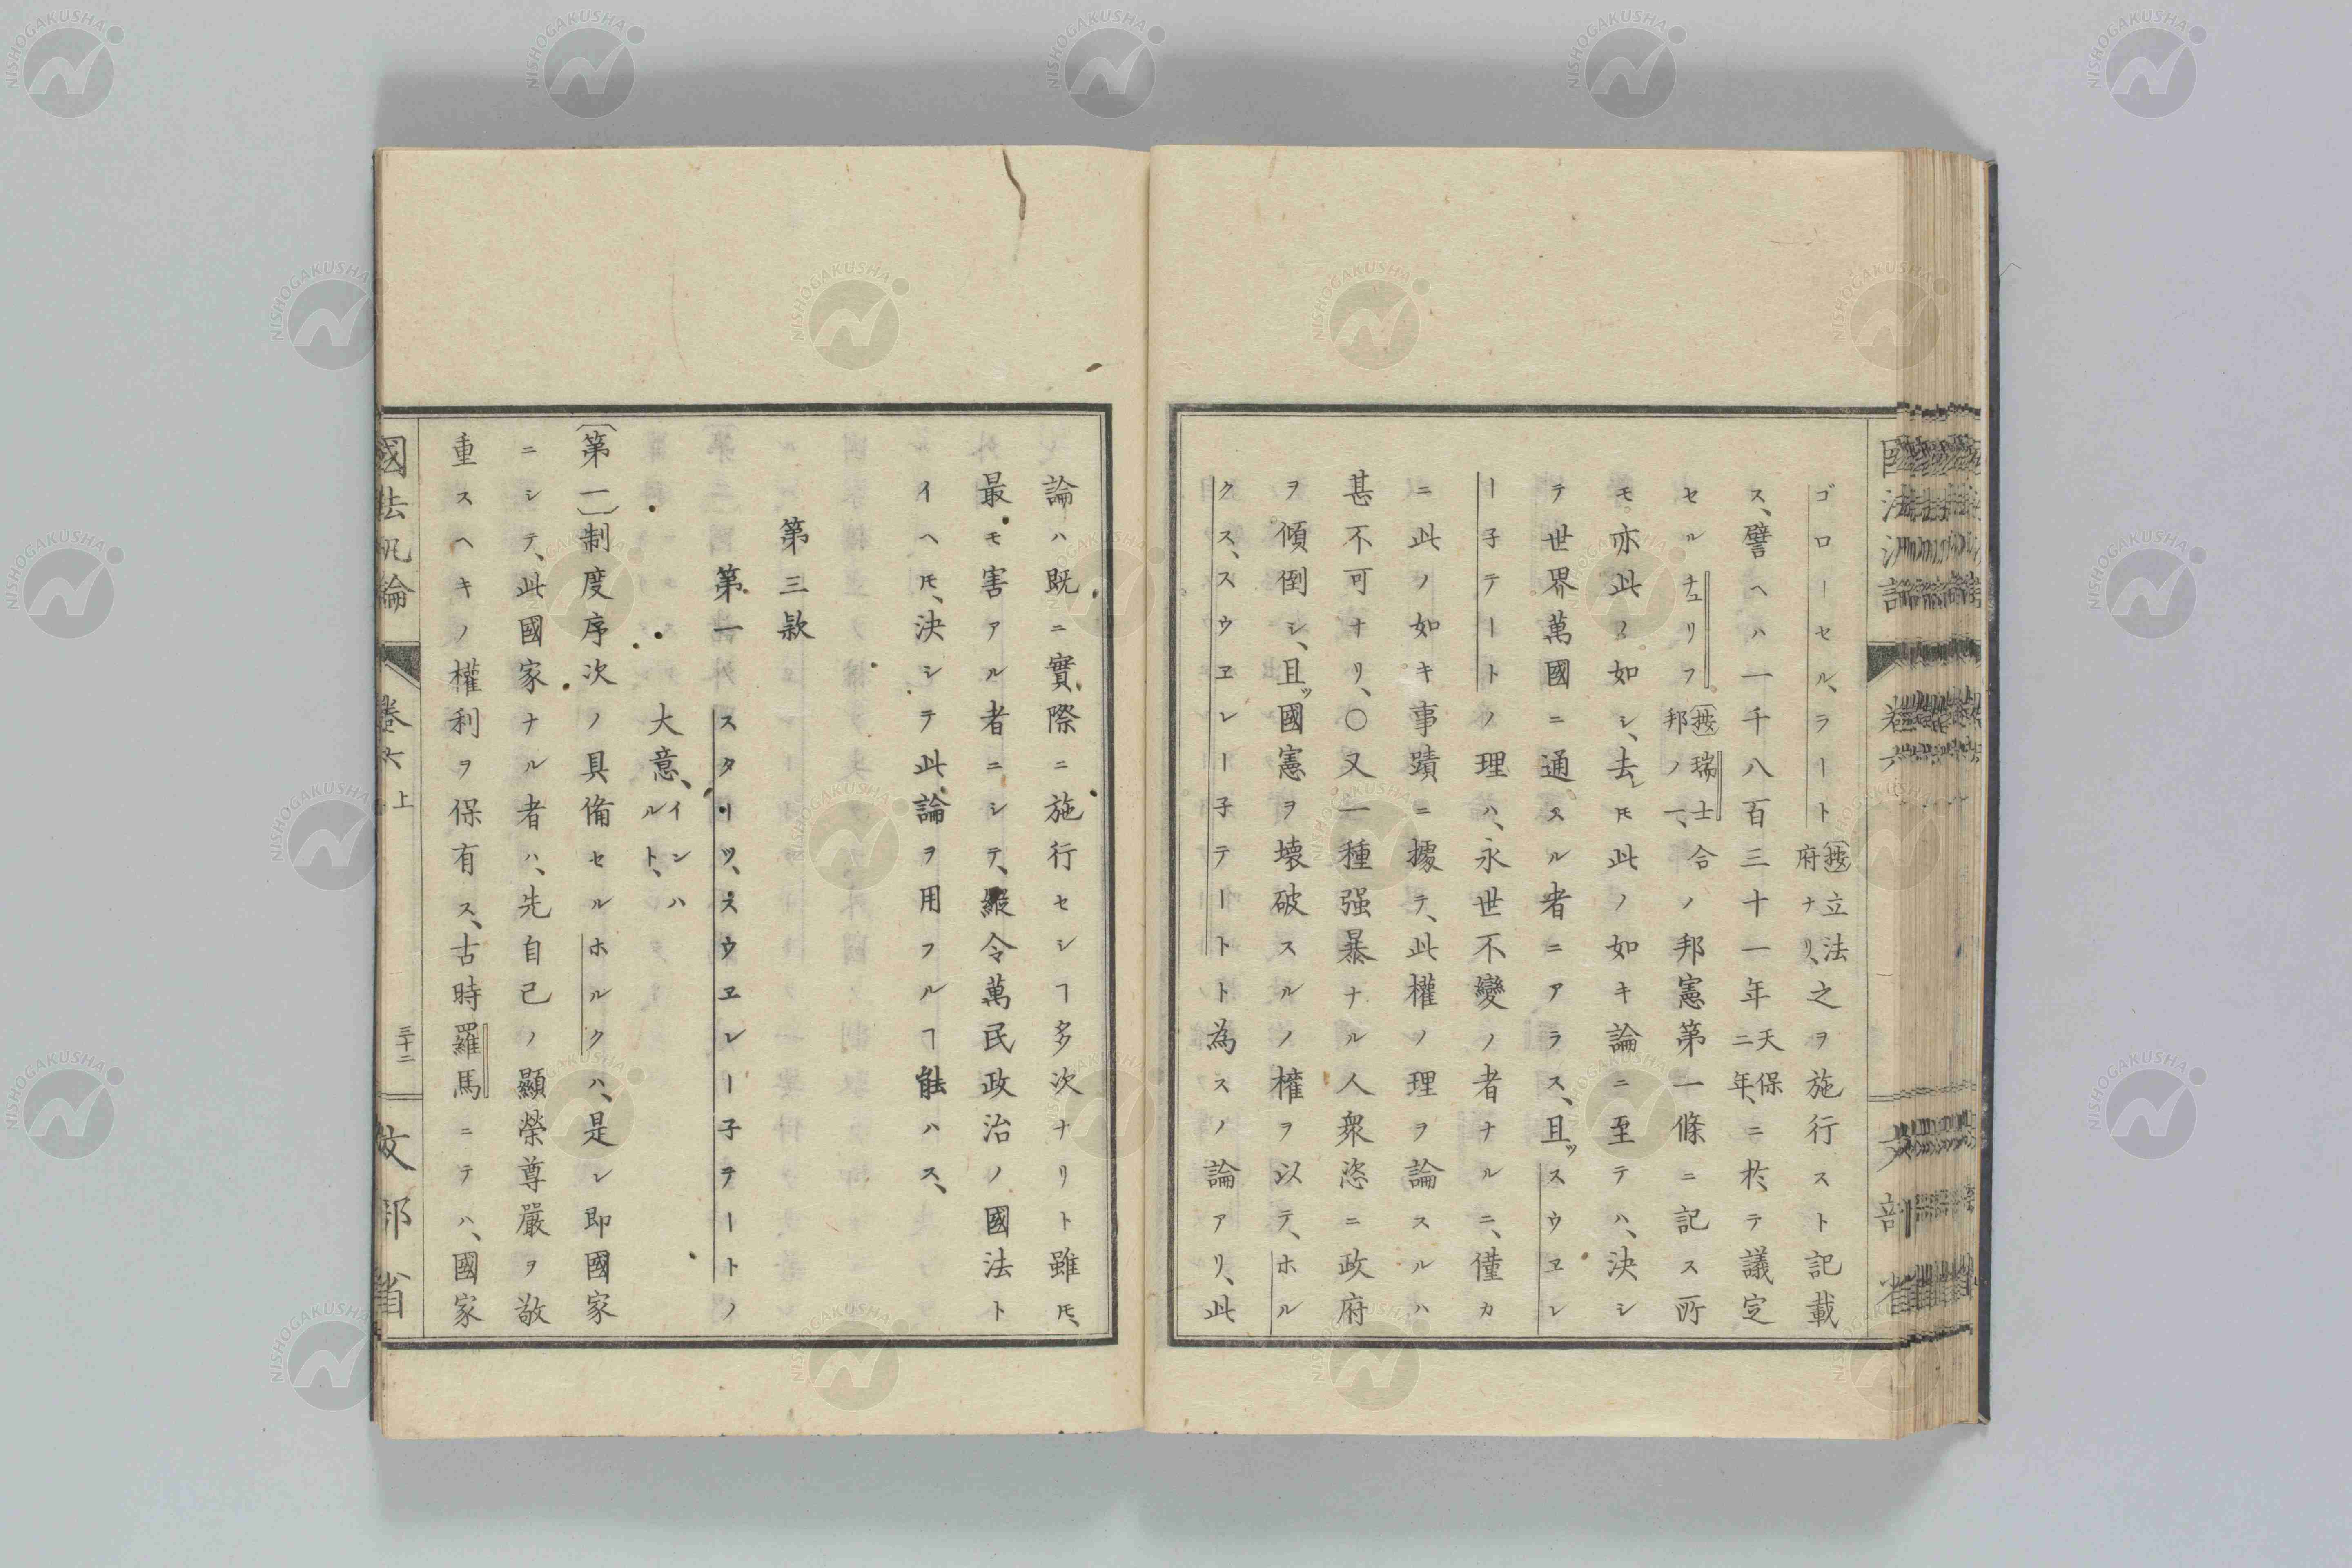 ゴローセル、ラート〔按〕立法府ナリ、之ヲ施行スト記載
ス、譬ヘハ一千八百三十一年天保二年、ニ於テ議定
セルチュリフ〔按〕瑞士合邦ノ一、ノ邦憲第一條ニ記ス所
モ亦此ノ如シ、去レ𪜈此ノ如キ論ニ至テハ、決シ
テ世界萬國ニ通スル者ニアラス、且ツスウヱレ
ー子テートノ理ハ、永世不變ノ者ナルニ、僅カ
ニ此ノ如キ事蹟ニ據テ、此權ノ理ヲ論スルハ
甚不可ナリ、〇又一種强暴ナル人衆恣ニ政府
ヲ傾倒シ、且ツ國憲ヲ壊破スルノ權ヲ以テ、ホル
クス、スウヱレー子テートト為スノ論アリ、此
論ハ既ニ實際ニ施行セシヿ多次ナリト雖𪜈、
最モ害アル者ニシテ、縱令萬民政治ノ國法ト
イヘ𪜈、決シテ此論ヲ用フルヿ能ハス、
第三款
第一 スターツ、スウヱレー子テートノ
大意、インハルト、
〔第一〕制度序次ノ具備セルホルクハ、是レ即國家
ニシテ、此國家ナル者ハ、先自己ノ顯榮尊嚴ヲ敬
重スヘキノ權利ヲ保有ス、古時羅馬ニテハ、國家
國法汎論 卷六上 三十二 文部省
NISHOGAKUSHA